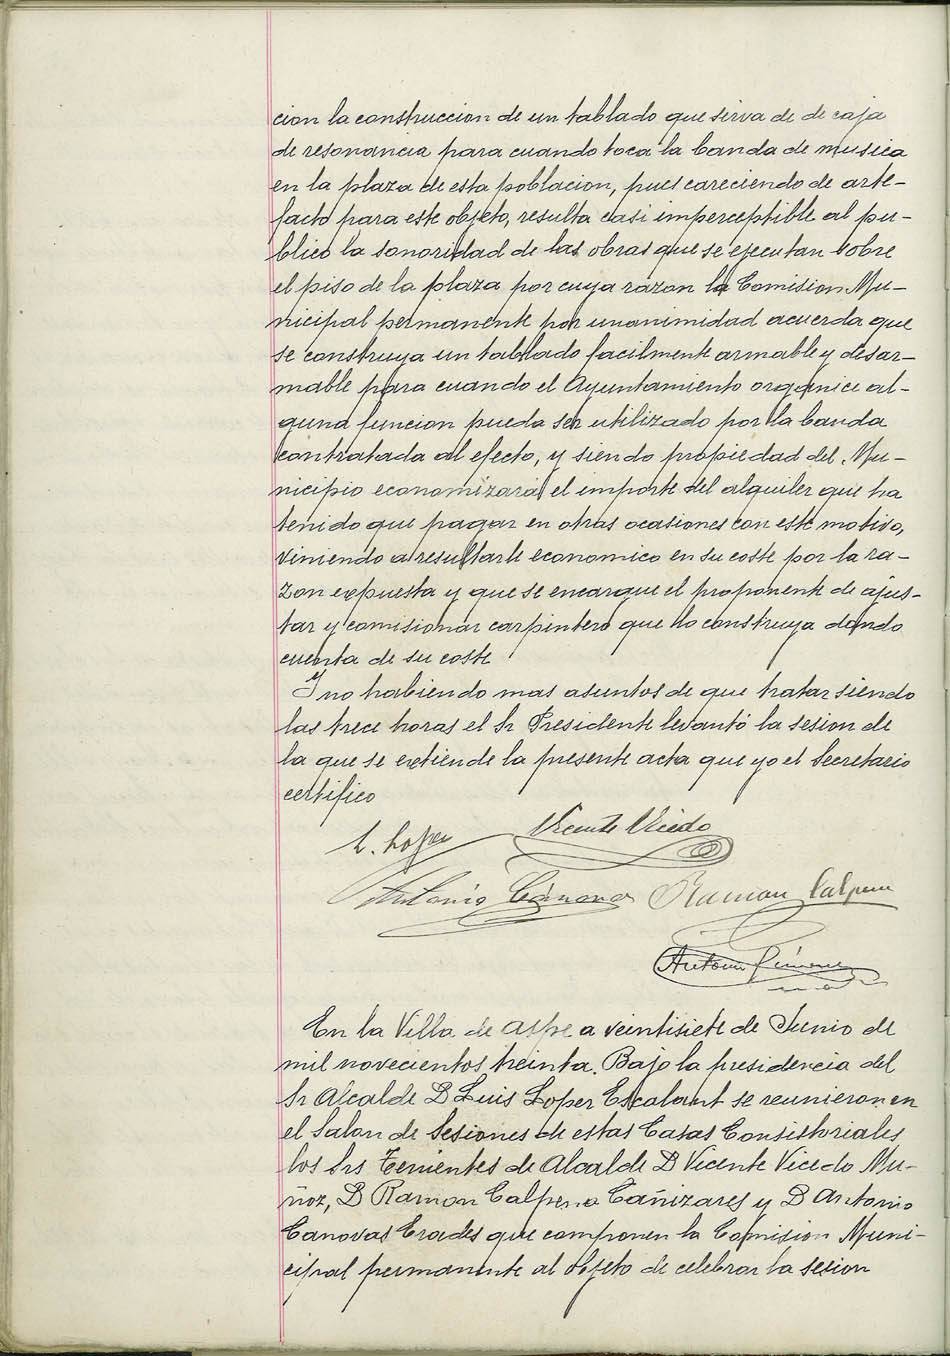 cion la construccion de un tablado que sirva de de caja
de resonancia para cuando toca la banda de musica
en la plaza de esta poblacion, pues careciendo de arte-
facto para este objeto, resulta casi imperceptible al pu-
blico la sonoridad de las obras que se ejecutan sobre
el piso de la plaza por cuya razon la Comision Mu-
nicipal permanente por unanimidad acuerda que
se construya un tablado facilmente armable y desar-
mable para cuando el Ayuntamiento organice al-
guna funcion pueda ser utilizado por la banda
contratada al efecto, y siendo propiedad del Mu-
nicipio economizará el importe del alquiler que ha
tenido que pagar en otras ocasiones con este motivo,
viniendo a resultarle economico en su coste por la ra-
zon expuesta y que se encargue el proponente de ajus-
tar y comisionar carpintero que lo construya dando
cuenta de su coste
Y no habiendo mas asuntos de que tratar siendo
las trece horas el Sr Presidente levantó la sesion de
la que se extiende la presente acta que yo el Secretario
certifico
L. Lopez Vicente Vicedo
Antonio Cánovas Ramon Calpena
Antonio Gimenez
En la Villa de Aspe a veintisiete de Junio de
mil novecientos treinta. Bajo la presidencia del
Sr Alcalde D Luis Lopez Escalant se reunieron en
el Salon de Sesiones de estas Casas Consistoriales
los Srs Tenientes de Alcalde D Vicente Vicedo Mu-
ñoz, D Ramon Calpena Cañizares y D Antonio
Canovas Erades que componen la Comision Muni-
cipal permanente al objeto de celebrar la sesion